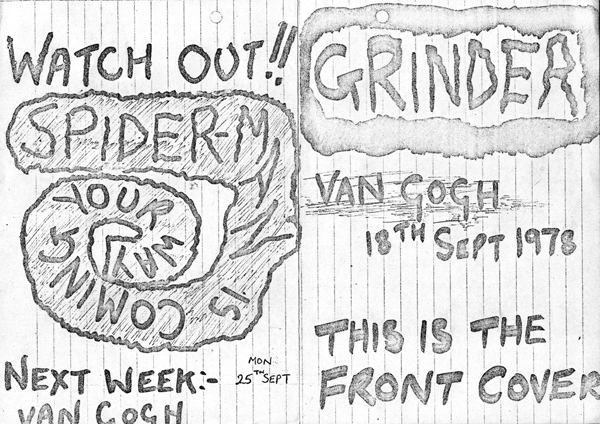 WATCH OUT!!
SPIDER-MAN IS COMING YOUR WAY
NEXT WEEK:-
MON
25TH SEPT
VAN GOGH
GRINDER
VAN GOGH
18TH SEPT 1978
THIS IS THE
FRONT COVER